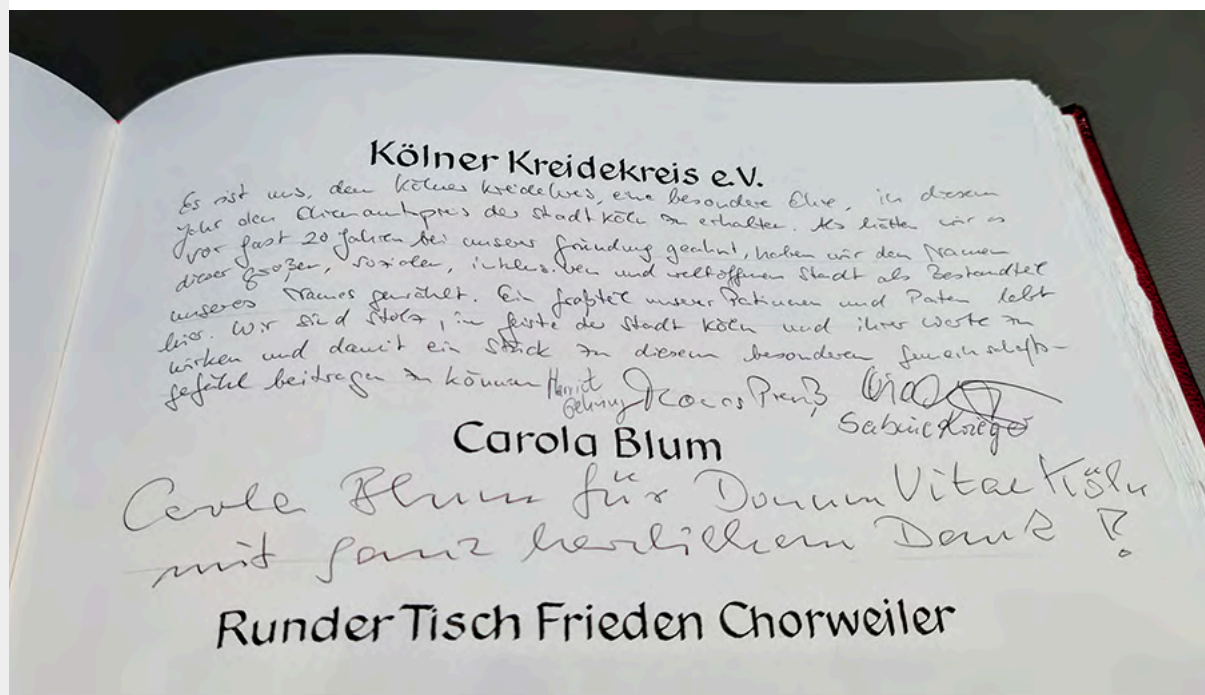 Kölner Kreidekreis e.V.
Es ist uns, dem Kölner Kreidekreis, eine besondere Ehre, in diesem
Jahr den Ehrenamtspreis der Stadt Köln zu erhalten. Als hätten wir es
vor fast 20 Jahren bei unserer Gründung geahnt, haben wir den Namen
dieser großen, sozialen, inklusiven und weltoffenen Stadt als Bestandteil
unseres Names gewählt. Ein Großteil unserer Patinnen und Paten lebt
hier. Wir sind stolz, im Geiste der Stadt Köln und ihrer Werte zu
wirken und damit ein Stück zu diesem besonderen Gemeinschafts-
gefühl beitragen zu können
Sabine Krieger
Carola Blum
Carola Blum für Donum Vitae Köln
mit ganz herzlichem Dank!
Runder Tisch Frieden Chorweiler